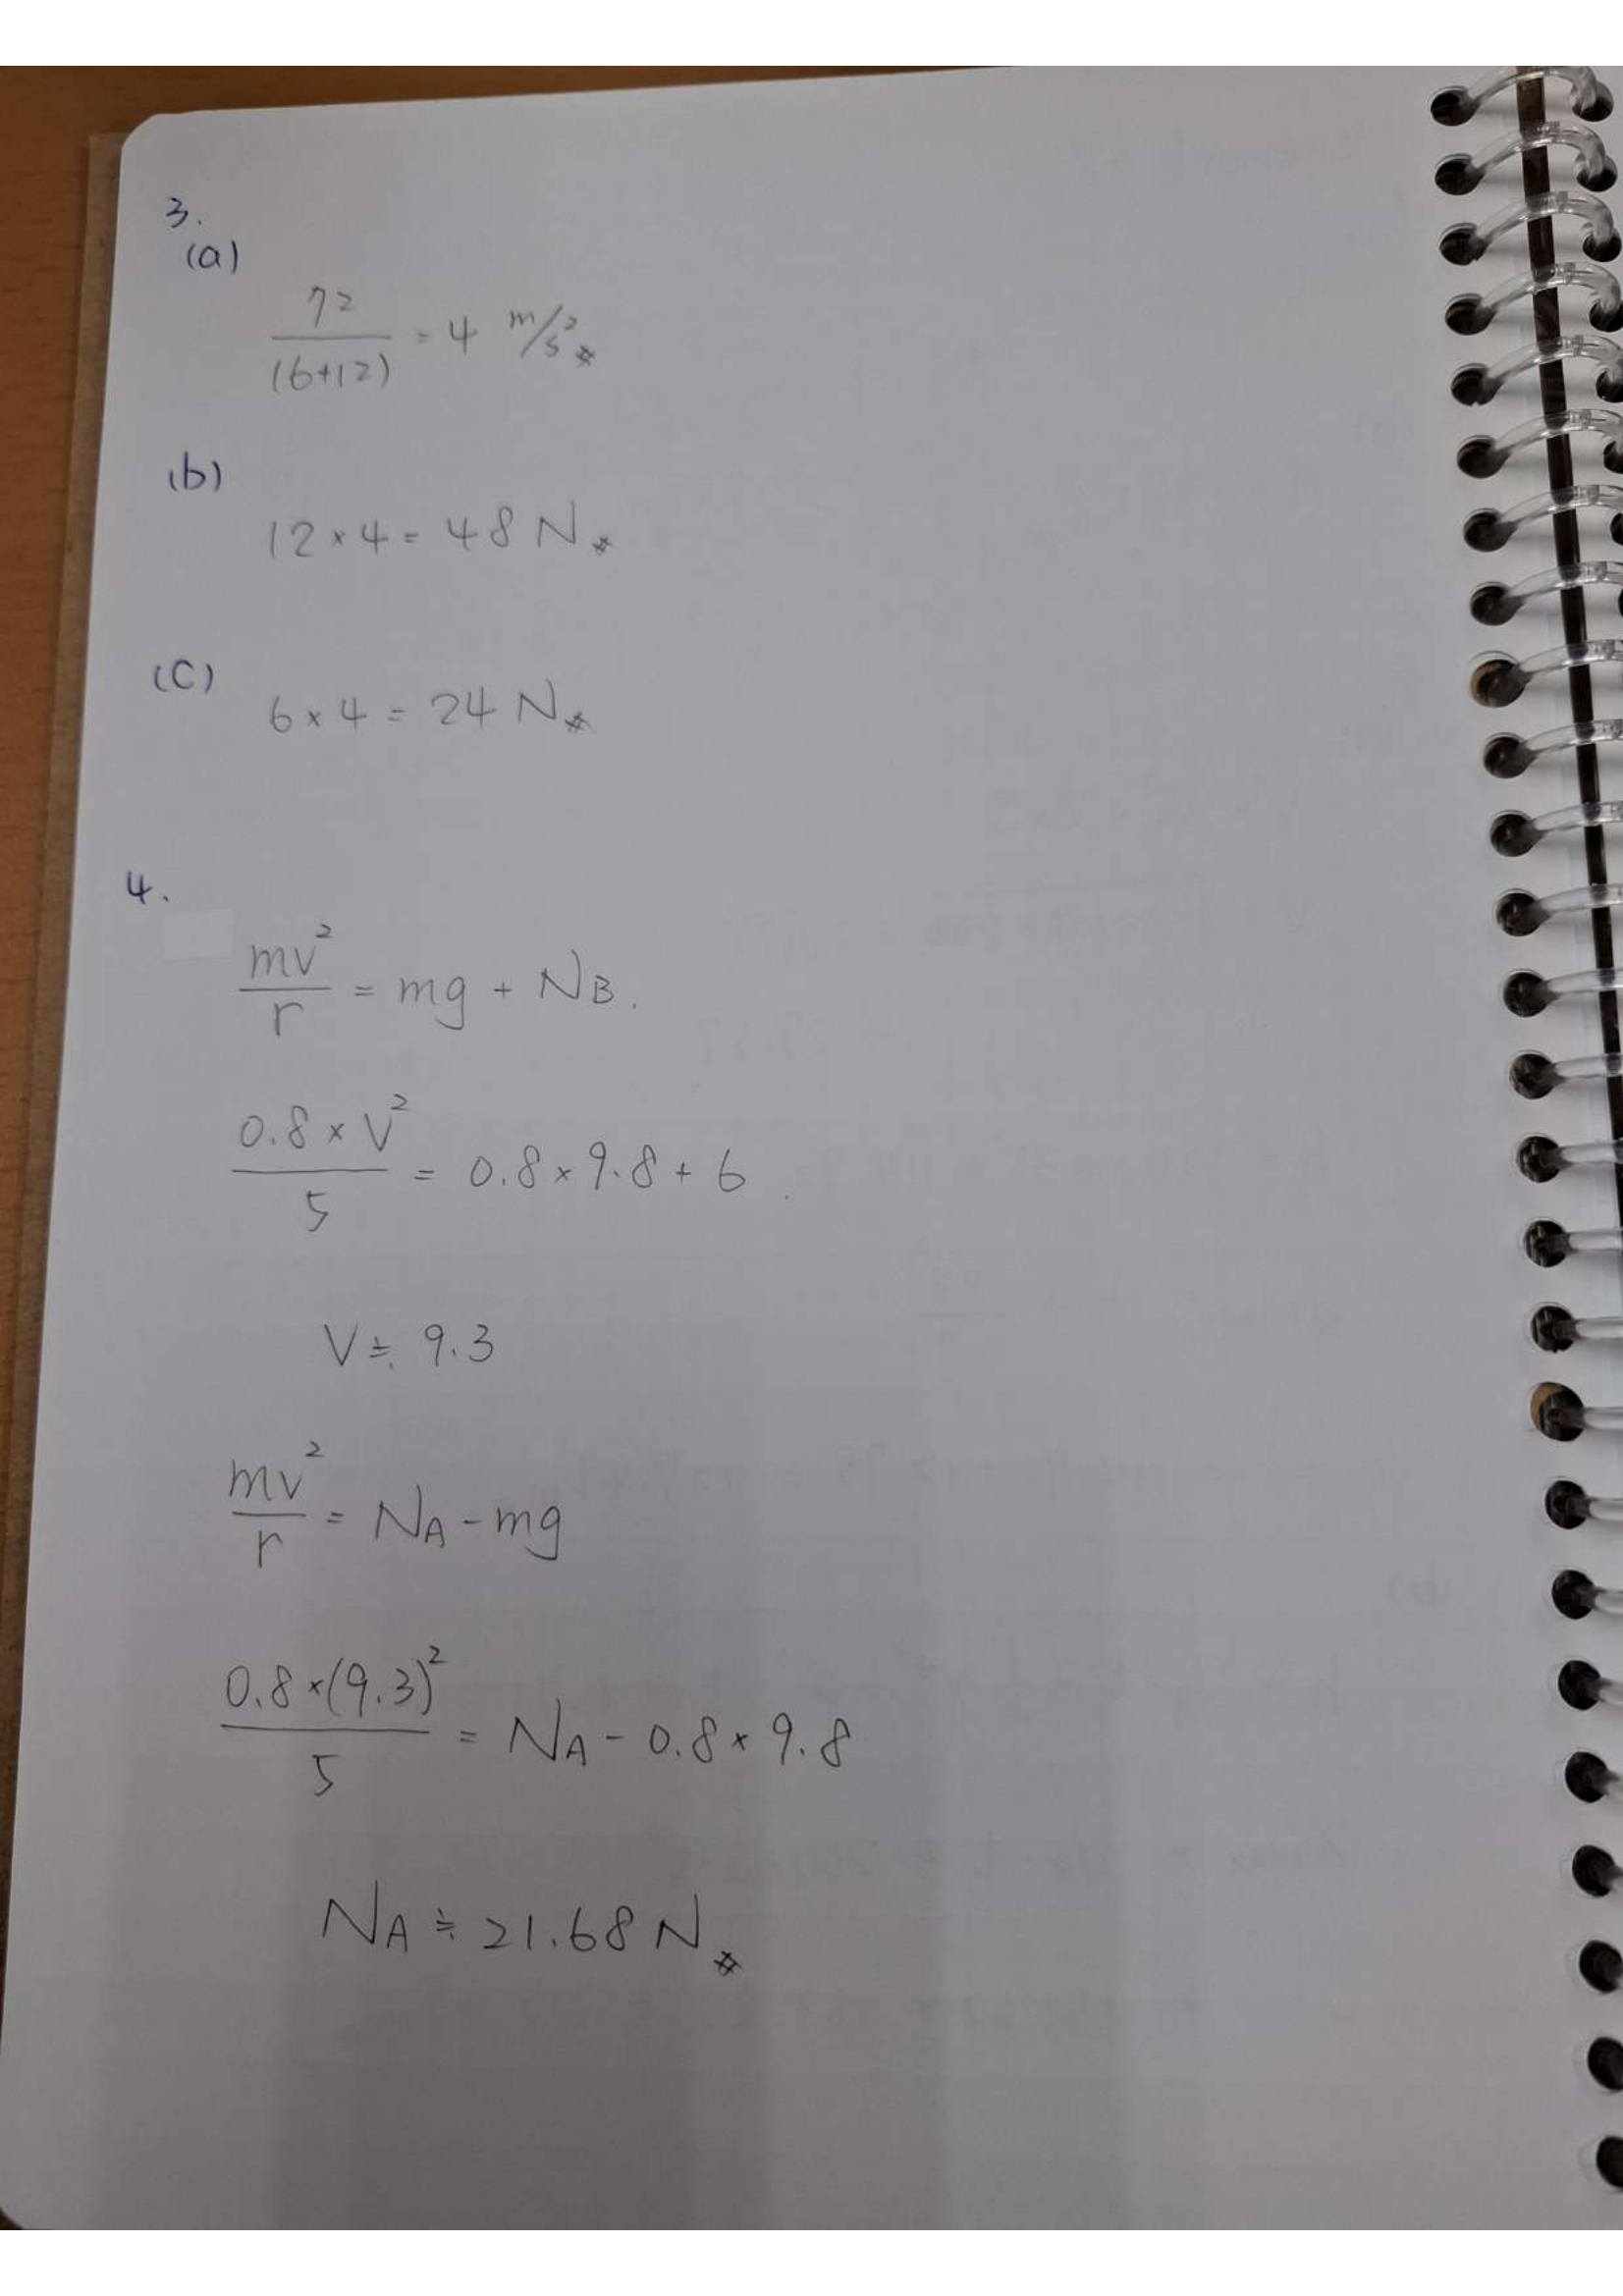 3.
(a)
72/(6+12) = 4 m/s²#
(b)
12 × 4 = 48 N#
(C)
6 × 4 = 24 N#
4.
mv²/r = mg + NB.
0.8 × V²/5 = 0.8 × 9.8 + 6
V ≒ 9.3
mv²/r = NA - mg
0.8 × (9.3)²/5 = NA - 0.8 × 9.8
NA ≒ 21.68 N#